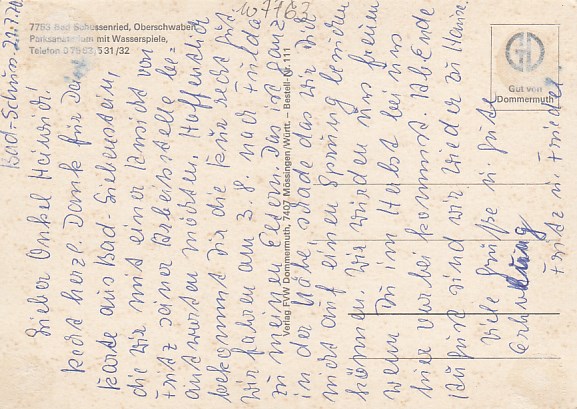 7763 Bad Schussenried, Oberschwaben
Parksanatorium mit Wasserspiele,
Telefon 07583/531/32
Verlag FVW Dommermuth, 7407 Mössingen/Württ. – Bestell-Nr. 111
Gut von
Dommermuth
Bad-Schuss. 22.7.
Lieber Onkel Heinrich!
Recht herzl. Dank für Deine
Karte aus Bad-Liebenstein,
die wir mit einer Ansicht von
Fritz seiner Arbeitsstelle be-
antworten möchten. Hoffentlich
bekommt dir die Kur recht gut
Wir fahren am 3.8. nach Fulda
zu meinen Eltern. Das ist ganz
in der Nähe schade das wir Dich
nicht auf einen Sprung besuchen
können. Wir würden uns freuen
wenn Du im Herbst bei uns
hier vorbei kommst. Ab Ende
August sind wir wieder zu Hause.
Viele Grüße u. gute
Erholung
Fritz u. Friedel